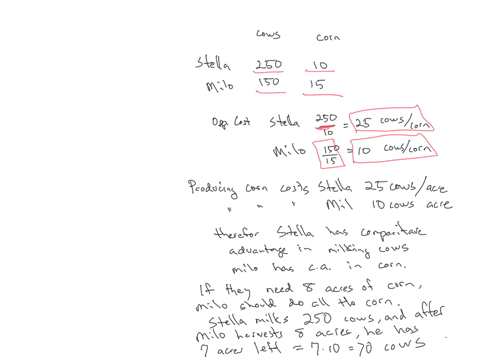 cows corn
Stella 250 10
Milo 150 15
Opp Cost Stella 250/10 = 25 cows/corn
Milo 150/15 = 10 cows/corn
Producing corn costs Stella 25 cows/acre
" " " Mil 10 cows acre
therefor Stella has comparitave
advantage in milking cows
milo has c.a. in corn.
If they need 8 acres of corn,
milo should do all the corn.
Stella milks 250 cows, and after
Milo harvests 8 acres, he has
7 acres left = 7·10 = 70 cows